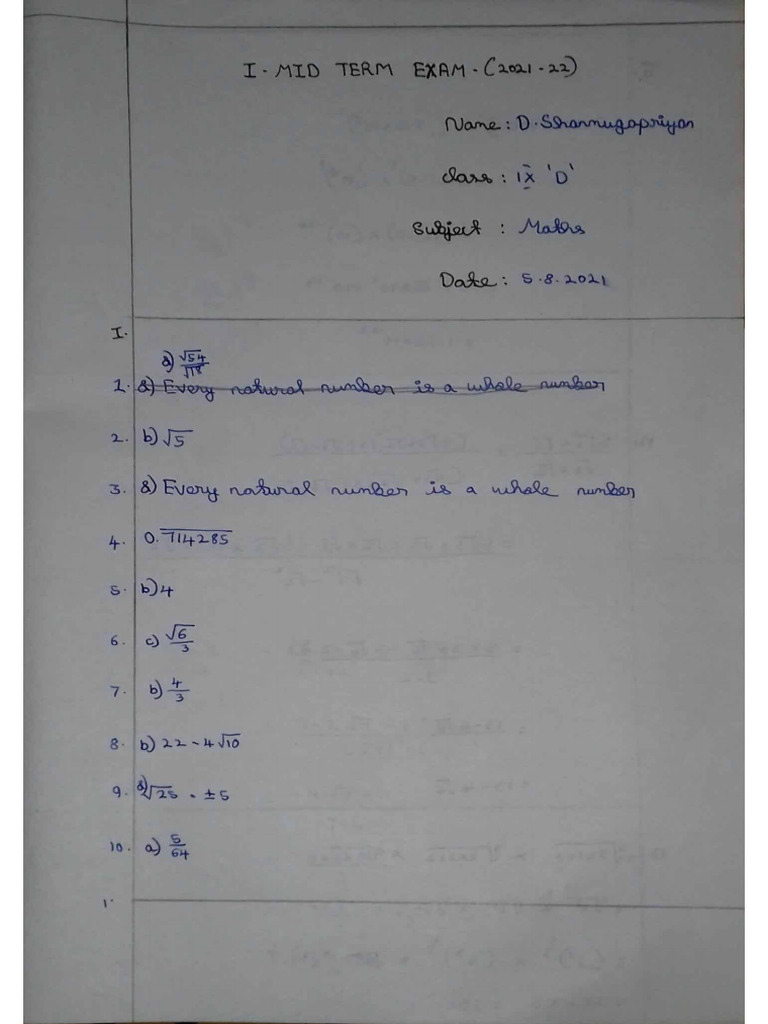 I - MID TERM EXAM - (2021 - 22)
Name : D. Sshanmugapriyan
class : IX 'D'
Subject : Maths
Date : 5.8.2021
I.
a) √54/√18
1. d) Every natural number is a whole number
2. b) √5
3. d) Every natural number is a whole number
4. 0.7̅1̅4̅2̅8̅5̅
5. b) 4
6. c) √6/3
7. b) 4/3
8. b) 22 - 4√10
9. d) √25 = ±5
10. a) 5/64